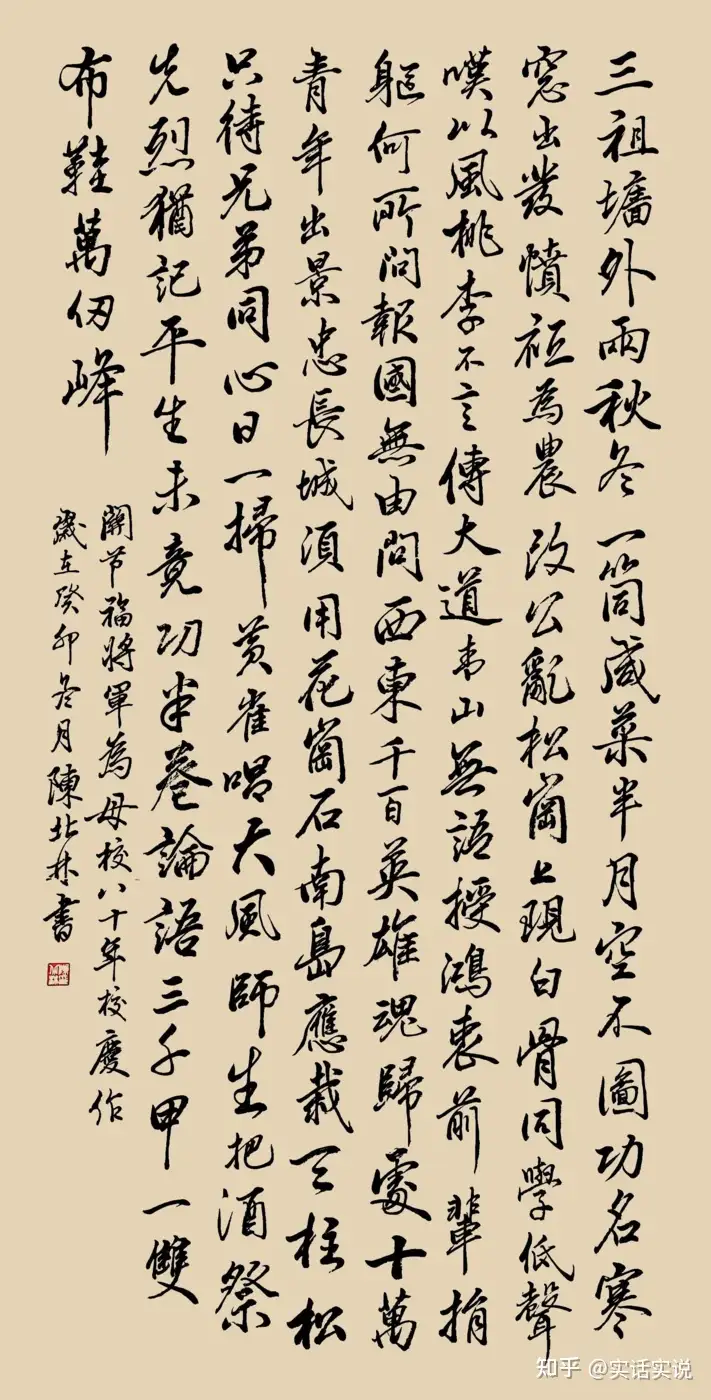 三祖墻外兩秋冬一筒咸菜半月空不圖功名寒
窓出發憤祗為農改公亂松崗上現白骨同學低聲
嘆以風桃李不言傳大道青山無語授鴻衷前輩捐
軀何所問報國無由問西東千百英雄魂歸處十萬
青年出景忠長城須用花崗石南島應栽天柱松
只待兄弟同心日一掃黃雀唱大風師生把酒祭
先烈猶記平生未竟功半卷論語三千甲一雙
布鞋萬仞峰
节福將軍為母校八十年校慶作
歲在癸卯冬月陳北林書
知乎 @实话实说